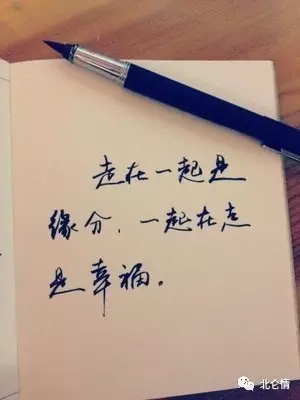 走在一起是
缘分,一起在走
是幸福。
北仑情